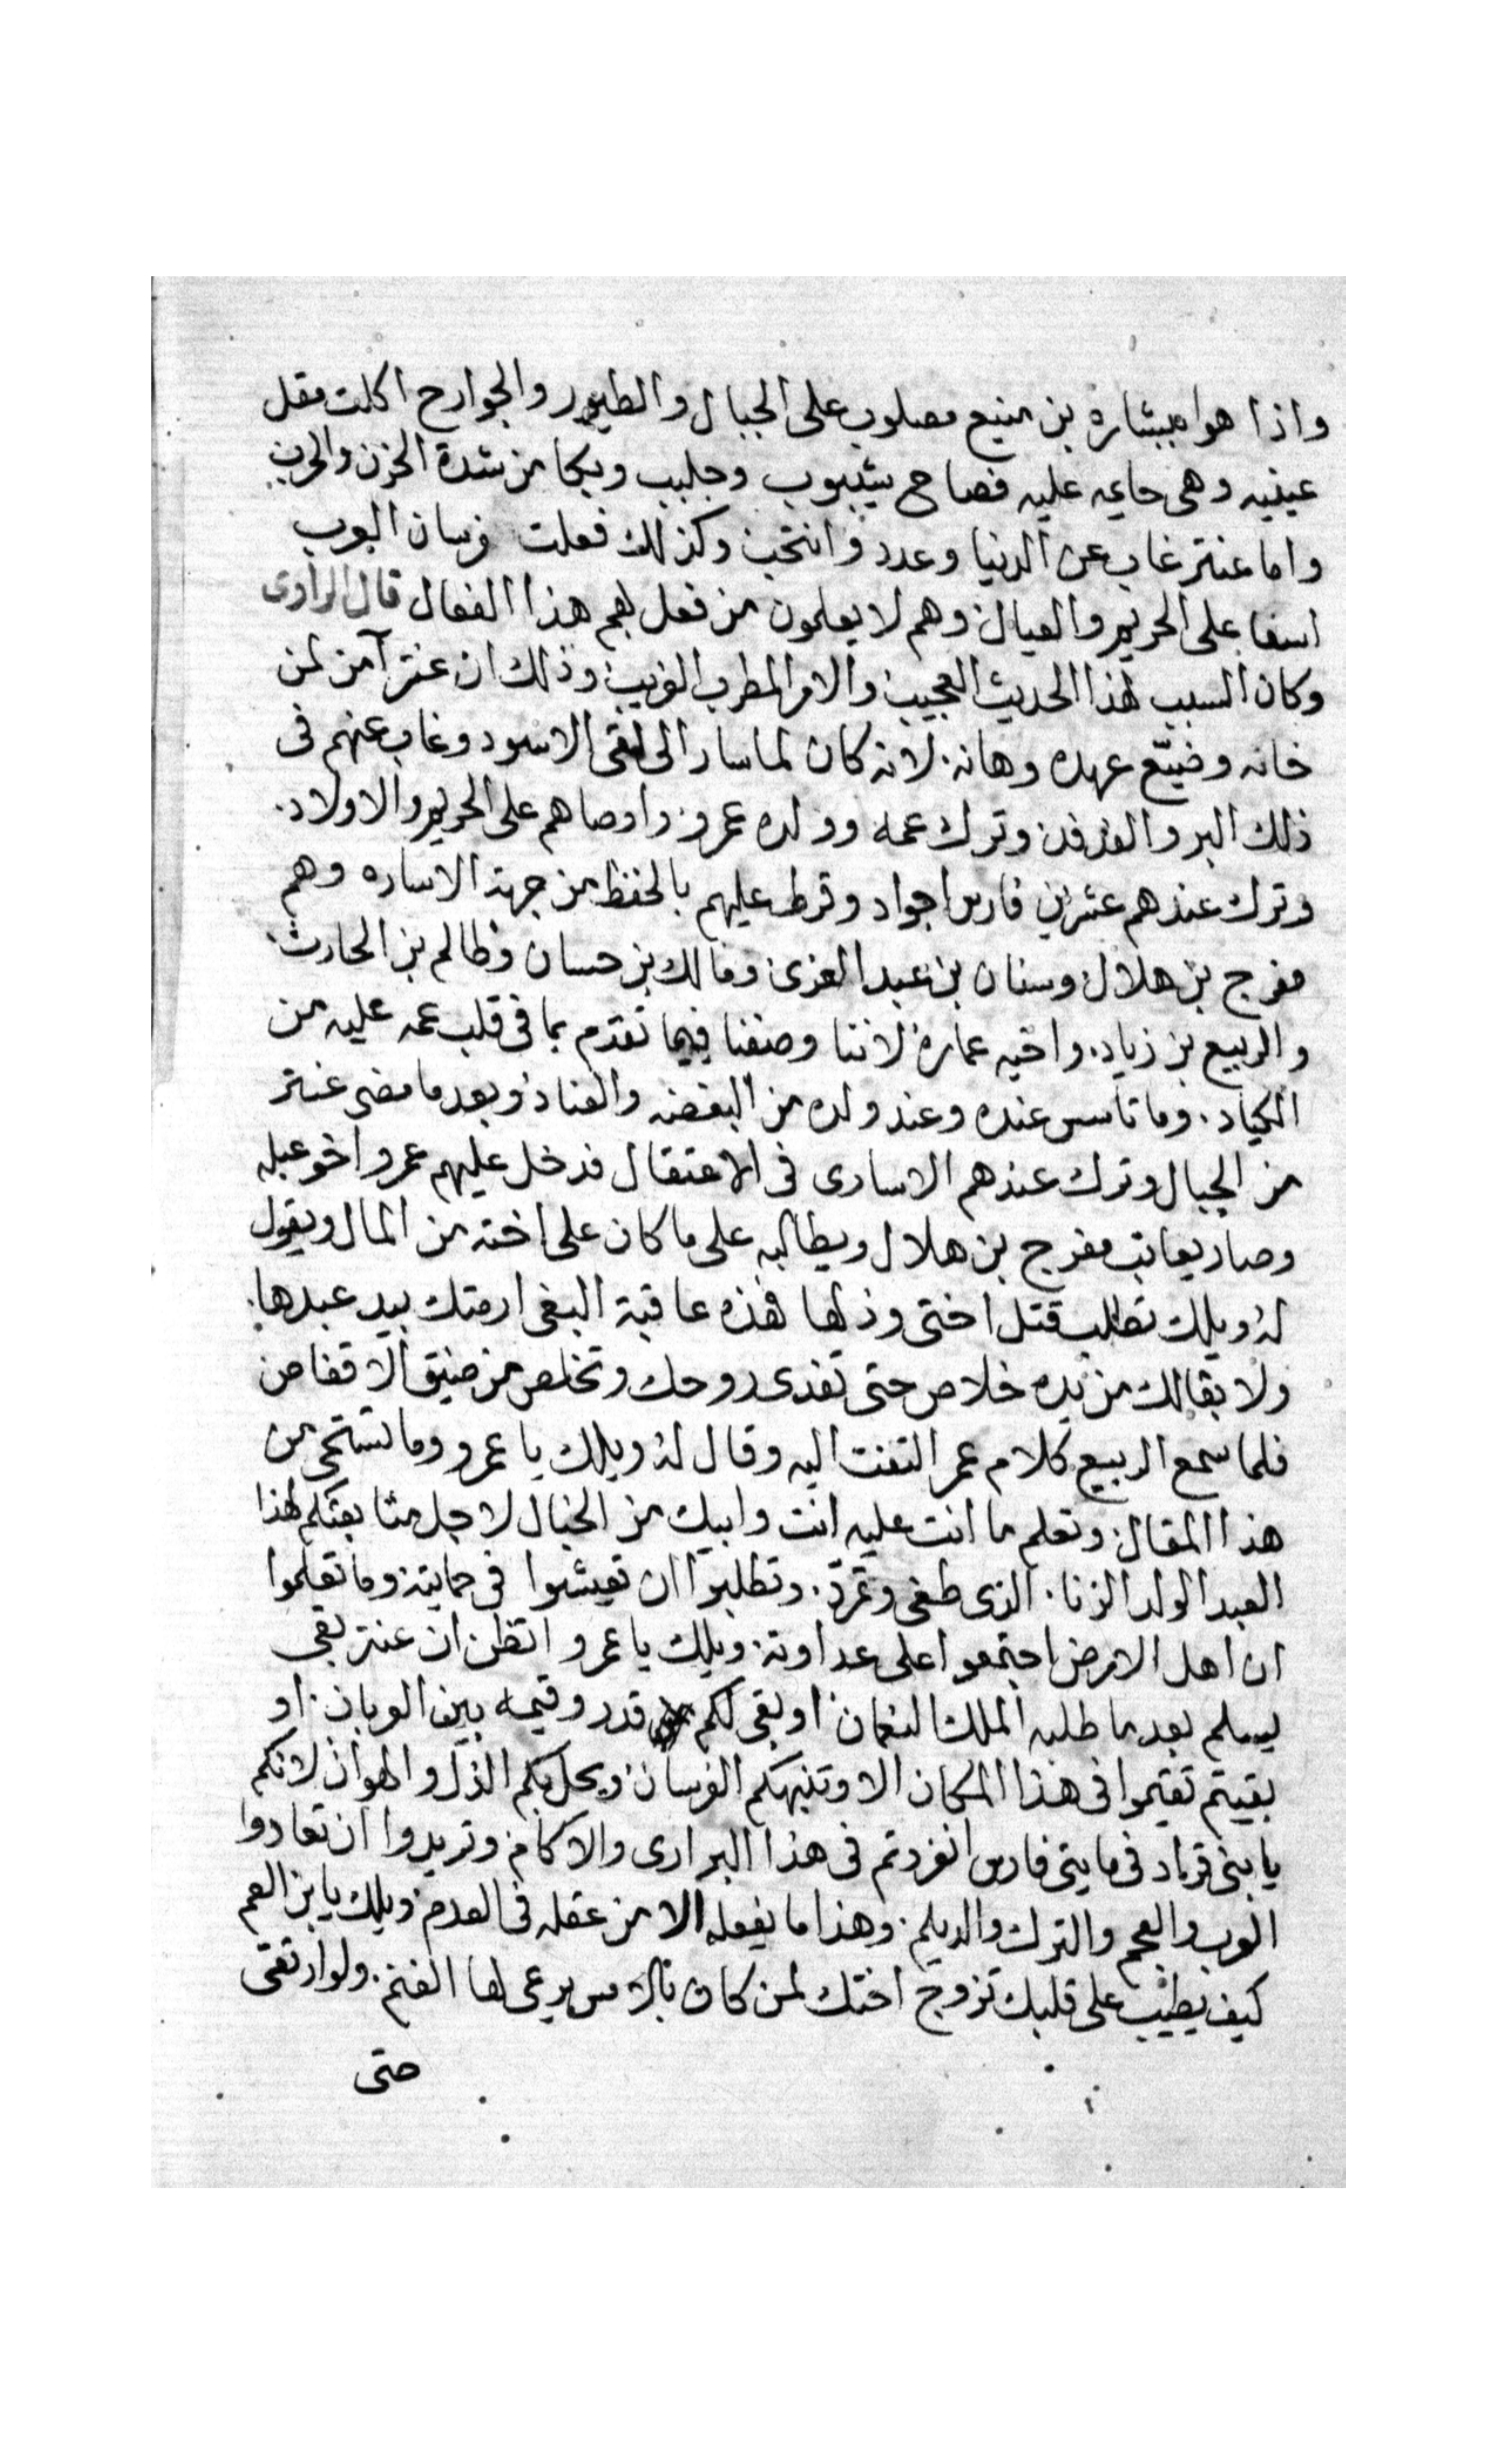 واذا هوا ببشاره بن منيع مصلوب على الجبال والطيور والجوارح اكلت مقل
عينيه وهى حايمه عليه فصاح شيبوب وجلبب وبكا من شدة الحزن والحرب
واما عنتر غاب عن الدنيا وعدد وانتحب وكذلك فعلت فرسان العرب
اسفا على الحريم والعيال وهم لا يعلمون من فعل بهم هذا الفعال قال الراوى
وكان السبب لهذا الحديث العجيب والامر المطرب الغريب وذلك ان عنتر آمن لمن
خانه وضيّع عهده وهانه لانه كان لما سار الى لقى الاسود وغاب عنهم فى
ذلك البر والفدفد وترك عمه وولده عمرو واوصاهم على الحريم والاولاد
وترك عندهم عشرين فارس اجواد وقرط عليهم بالحفظ من جهة الاساره وهم
مفرج بن هلال وسنان بن عبد العزى ومالك بن حسان وظالم بن الحارث
والربيع بن زياد واخيه عماره لاننا وصفنا فيما تقدم بما فى قلب عمه عليه من
الكياد وما تاسس عنده وعند ولده من البغضه والعناد وبعد ما مضى عنتر
من الجبال وترك عندهم الاسارى فى الاعتقال فدخل عليهم عمرو اخو عبله
وصار يعاتب مفرج بن هلال ويطالبه على ما كان على اخته من المال ويقول
له ويلك تطلب قتل اختى وذلها فهذه عاقبة البغى ارمتك بيد عبدها
ولا بقالك من يده خلاص حتى تفدى روحك وتخلص من ضيق الاقفاص
فلما سمع الربيع كلام عمر التفت اليه وقال له ويلك يا عمرو وما تستحى من
هذا المقال وتعلم ما انت عليه انت وابيك من الخبال لاجل متابعتكم لهذا
العبد الولد الزنا الذى طغى وتمرد وتطلبوا ان تعيشوا فى حمايته وما تعلموا
ان اهل الارض اجتمعوا على عداوته ويلك يا عمرو اتظن ان عنتر بقى
يسلم بعد ما طلبه الملك النعمان او بقى لكم قدر وقيمه بين العربان او
بقيتم تقيموا فى هذا المكان الا وتنهبكم الفرسان ويحل بكم الذل والهوان لانكم
يا بنى قراد فى مايتى فارس انفردتم فى هذا البرارى والاكام وتريدوا ان تعادوا
العرب والعجم والترك والديلم وهذا ما يفعله الا من عقله فى العدم ويلك يا بن العم
كيف يطيب على قلبك تزوج اختك لمن كان بالامس يرعى لها الغنم ولو ارتقى
حتى